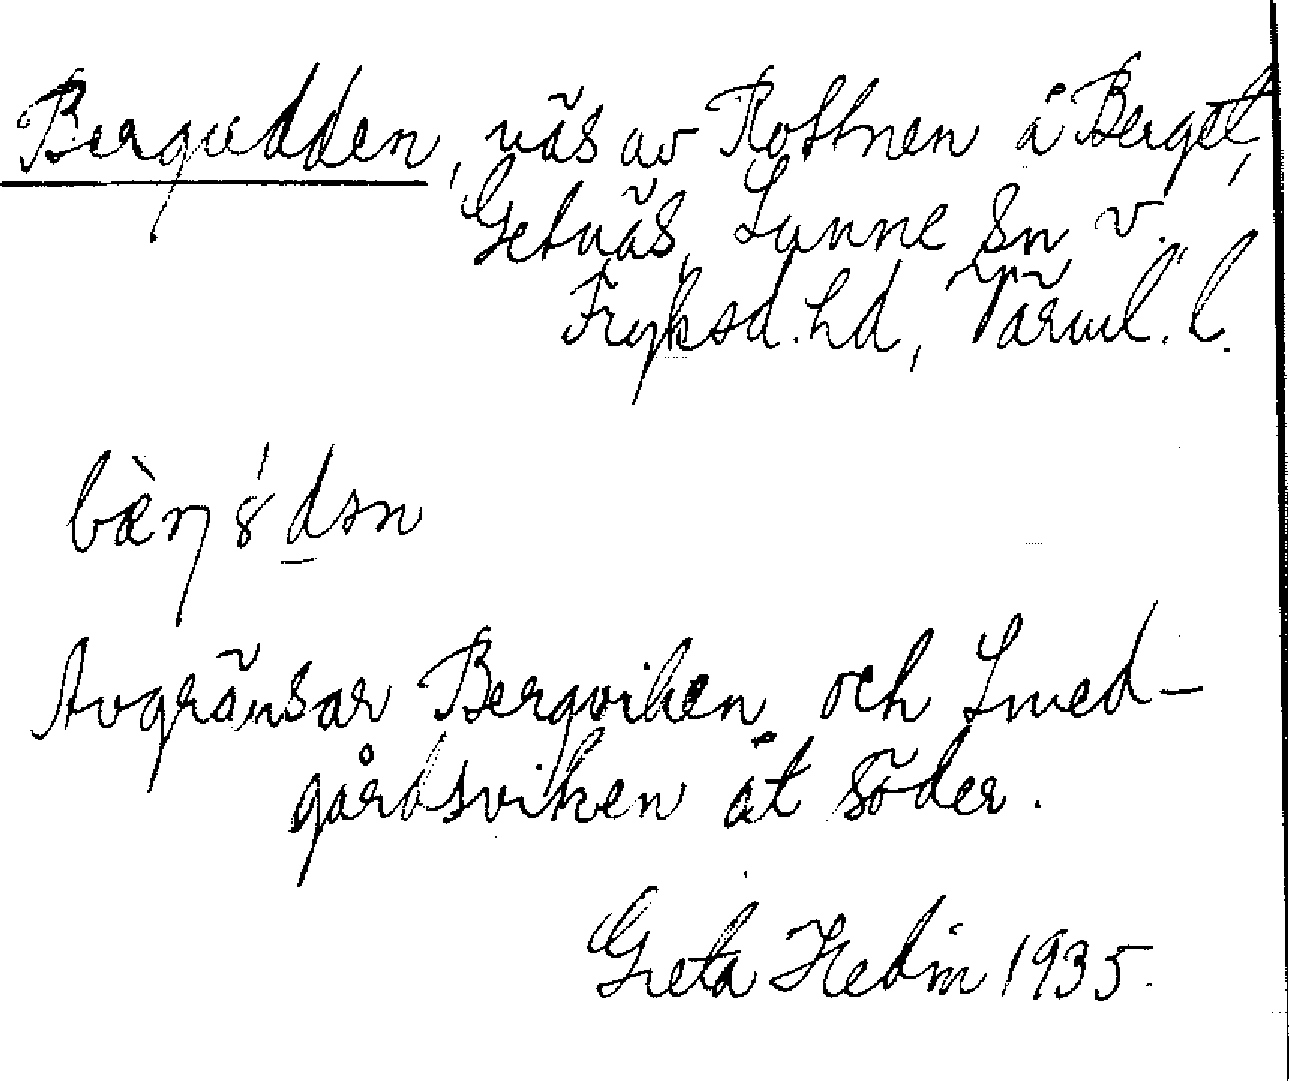 Bergudden, näs av Rottnen å Berget,
Getnäs, Sunne sn V.
Fryksd. hd, Värml. l.
bæ̀rŋ 8́ dən
Avgränsar Bergviken och Smed-
gårdsviken åt söder.
Greta Hedin 1935.